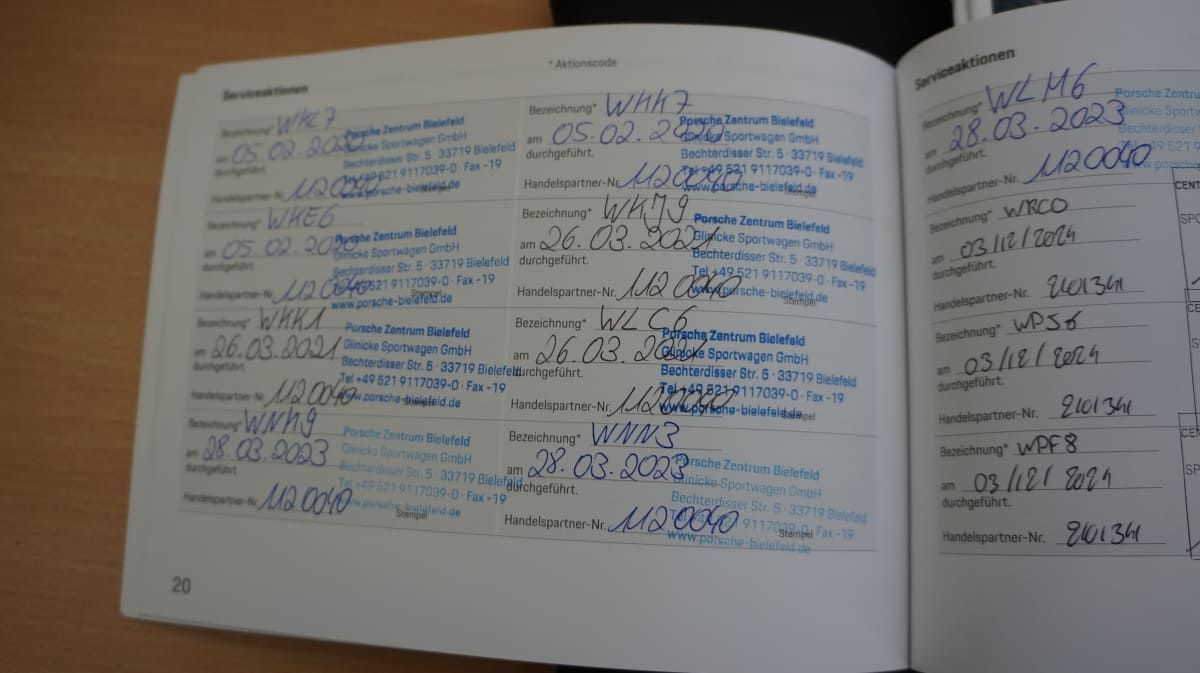 * Aktionscode
Serviceaktionen
Bezeichnung* WKL7
am 05.02.2020
durchgeführt.
Handelspartner-Nr. 1120040
Porsche Zentrum Bielefeld
Glinicke Sportwagen GmbH
Bechterdisser Str. 5 · 33719 Bielefeld
Tel +49 521 9117039-0 · Fax -19
www.porsche-bielefeld.de
Stempel
Bezeichnung* WKK7
am 05.02.2020
durchgeführt.
Handelspartner-Nr. 1120040
Porsche Zentrum Bielefeld
Glinicke Sportwagen GmbH
Bechterdisser Str. 5 · 33719 Bielefeld
Tel +49 521 9117039-0 · Fax -19
www.porsche-bielefeld.de
Stempel
Bezeichnung* WKE6
am 05.02.2020
durchgeführt.
Handelspartner-Nr. 1120040
Porsche Zentrum Bielefeld
Glinicke Sportwagen GmbH
Bechterdisser Str. 5 · 33719 Bielefeld
Tel +49 521 9117039-0 · Fax -19
www.porsche-bielefeld.de
Stempel
Bezeichnung* WKJ9
am 26.03.2021
durchgeführt.
Handelspartner-Nr. 1120040
Porsche Zentrum Bielefeld
Glinicke Sportwagen GmbH
Bechterdisser Str. 5 · 33719 Bielefeld
Tel +49 521 9117039-0 · Fax -19
www.porsche-bielefeld.de
Stempel
Bezeichnung* WKK1
am 26.03.2021
durchgeführt.
Handelspartner-Nr. 1120040
Porsche Zentrum Bielefeld
Glinicke Sportwagen GmbH
Bechterdisser Str. 5 · 33719 Bielefeld
Tel +49 521 9117039-0 · Fax -19
www.porsche-bielefeld.de
Stempel
Bezeichnung* WLC6
am 26.03.2021
durchgeführt.
Handelspartner-Nr. 1120040
Porsche Zentrum Bielefeld
Glinicke Sportwagen GmbH
Bechterdisser Str. 5 · 33719 Bielefeld
Tel +49 521 9117039-0 · Fax -19
www.porsche-bielefeld.de
Stempel
Bezeichnung* WNH9
am 28.03.2023
durchgeführt.
Handelspartner-Nr. 1120040
Porsche Zentrum Bielefeld
Glinicke Sportwagen GmbH
Bechterdisser Str. 5 · 33719 Bielefeld
Tel +49 521 9117039-0 · Fax -19
www.porsche-bielefeld.de
Stempel
Bezeichnung* WNN3
am 28.03.2023
durchgeführt.
Handelspartner-Nr. 1120040
Porsche Zentrum Bielefeld
Glinicke Sportwagen GmbH
Bechterdisser Str. 5 · 33719 Bielefeld
9117039-0 · Fax -19
www.porsche-bielefeld.de
Stempel
20
Serviceaktionen
Bezeichnung* WLM6
am 28.03.2023
durchgeführt.
Handelspartner-Nr. 1120040
Porsche Zentrum
Glinicke Sportwagen
Bechterdisser
+49 521 9
www.porsche
Bezeichnung* WRC0
am 03/12/2024
durchgeführt.
Handelspartner-Nr. 2101341
CENT
SPO
Bezeichnung* WPS6
am 03/12/2024
durchgeführt.
Handelspartner-Nr. 2101341
CE
Bezeichnung* WPF8
am 03/12/2024
durchgeführt.
Handelspartner-Nr. 2101341
CEN
SP